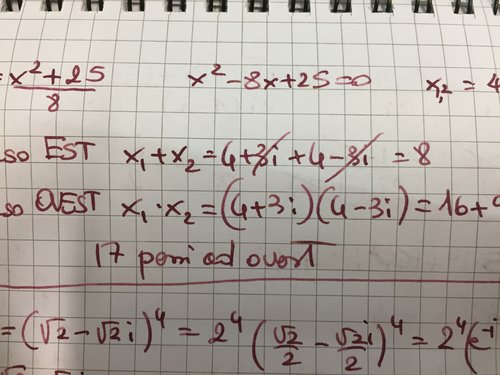 = x²+25/8    x²-8x+25=0    x₁,₂ = 4
so EST x₁+x₂=4+3i+4-3i=8
so OVEST x₁·x₂=(4+3i)(4-3i)=16+9
17 pomi ad ovest
=(√2-√2i)⁴=2⁴(√2/2-√2i/2)⁴=2⁴(e⁻ⁱ